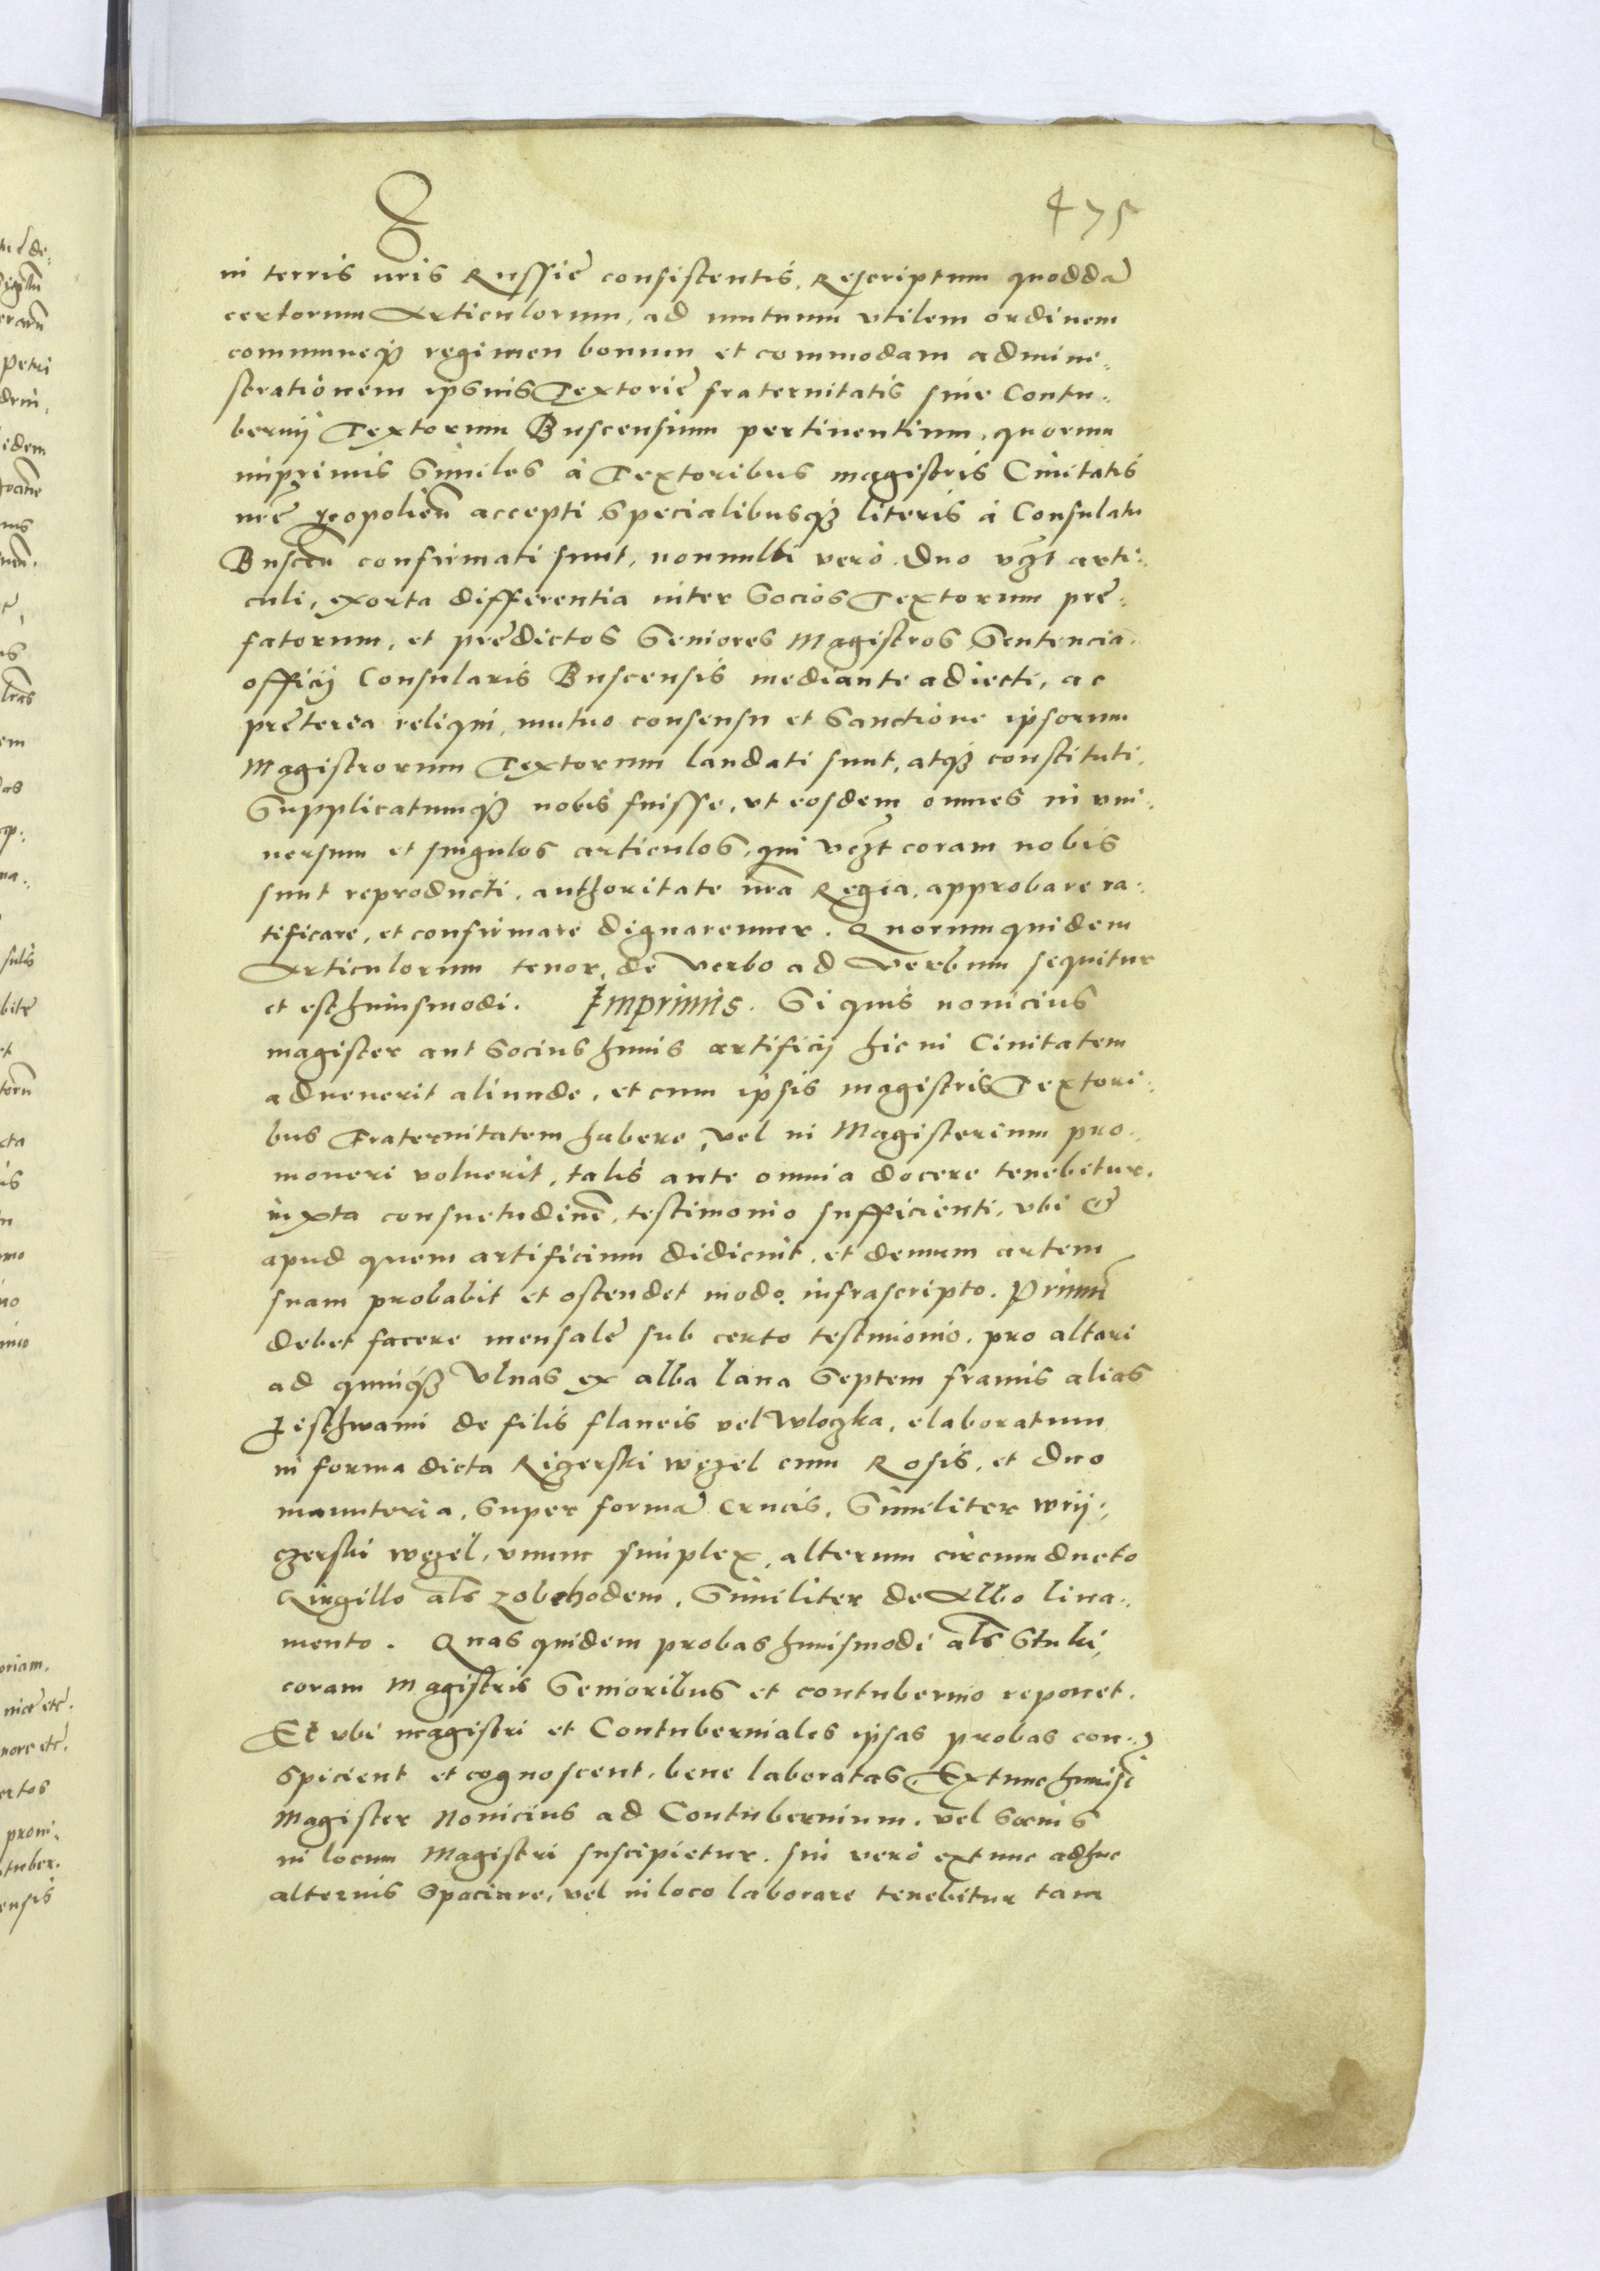 475
in terris nris Russie consistentis, Rescriptum quodda
certorum Articulorum, ad mutuum vtilem ordinem
communeq3 regimen bonum et commodam admini:
strationem ipsius Textorie fraternitatis siue Contu:
bernij Textorum Buscensium pertinentium, quorum
inprimis Similes à Textoribus magistris Ciuitatis
nre Leopolien accepti Specialibusq3 literis à Consulatu
Buscen confirmati sunt, nonnulli verò duo vcz arti:
culi, exorta differentia inter Socios Textorum pre:
fatorum, et predictos Seniores Magistros Sentencia
officij Consularis Buscensis mediante adiecti, ac
preterea reliqui, mutuo consensu et Sanctione ipsorum
Magistrorum Textorum laudati sunt, atq3 constituti.
Supplicatumq3 nobis fuisse, vt eosdem omnes in vni:
uersum et singulos articulos, qui vczt coram nobis
sunt reproducti, authoritate nra Regia, approbare ra:
tificare, et confirmare dignaremur. Quorum quidem
Articulorum tenor, de verbo ad verbum sequitur
et est huiusmodi. Imprimis. Si quis nouicius
magister aut Socius huius artificij hic in Ciuitatem
aduenerit aliunde, et cum ipsis magistris Textori:
bus Fraternitatem habere, vel in Magisterium pro:
moueri voluerit, talis ante omnia docere tenebitur
iuxta consuetudine, testimonio sufficienti, vbi et
apud quem artificium didicuit, et demum artem
suam probabit et ostendet modo infrascripto. Primu
debet facere mensale sub certo testimonio, pro altari
ad quinq3 vlnas ex alba lana Septem framis alias
de filis flaueis vel wloczka, elaboratum
in forma dicta Rigerski węzel cum Rosis, et duo
manuteria, Super forma Crucis, Similiter wrij:
czerski węzel, vnum simplex, alterum circumducto
Cirgillo als zobchodem, Similiter de Albo lina:
mento. Quas quidem probas huiusmodi als Stuki,
coram Magistris Senioribus et contubernio reponet.
Et vbi magistri et Contuberniales ipsas probas con:
spicient et cognoscent, bene laboratas, Extunc huiusi
Magister Nouicius ad Contubernium, vel Socius
in locum Magistri suscipietur. sin verò extunc adhuc
alterius Spaciare, vel in loco laborare tenebitur tam